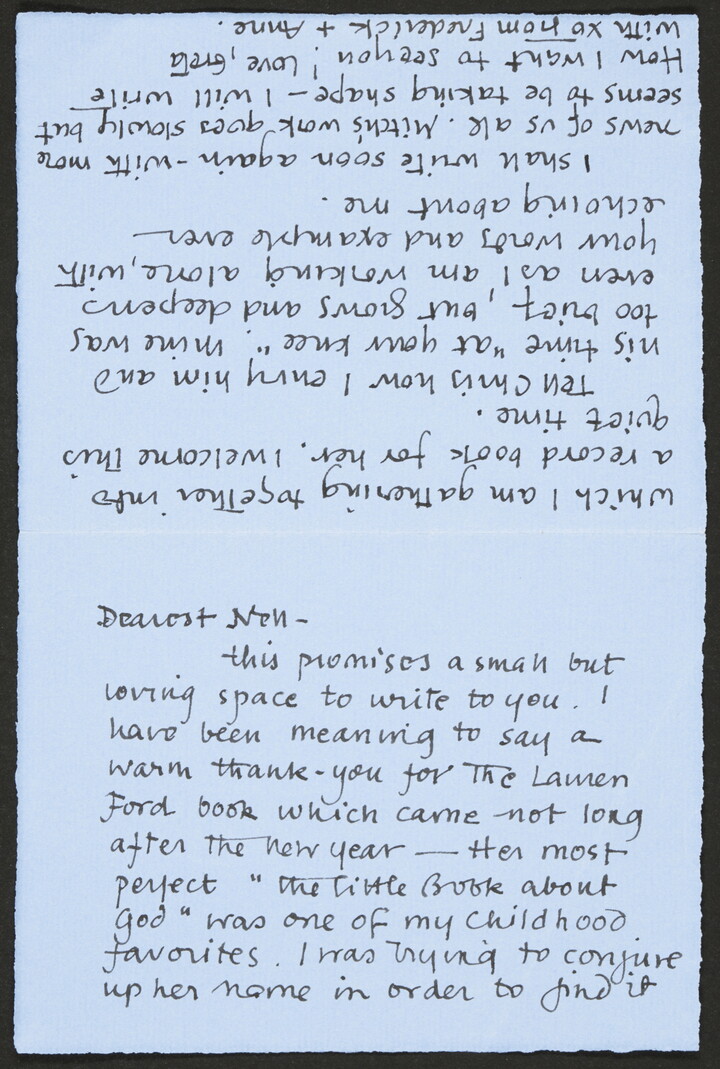 Dearest Nell-
this promises a small but
loving space to write to you. I
have been meaning to say a
warm thank-you for The Lauren
Ford book which came not long
after the new year — Her most
perfect "the little Book about
God" was one of my childhood
favorites. I was trying to conjure
up her name in order to find it
which I am gathering together into
a record book for her. I welcome this
quiet time.
Tell Chris how I envy him and
his time "at your knee". Mine was
too brief, but grows and deepens
even as I am working alone, with
your words and example ever
echoing about me.
I shall write soon again-with more
news of us all. Mitch's work goes slowly but
seems to be taking shape - I will write
How I want to see you! Love, Greta
with xo from Frederick + Anne.